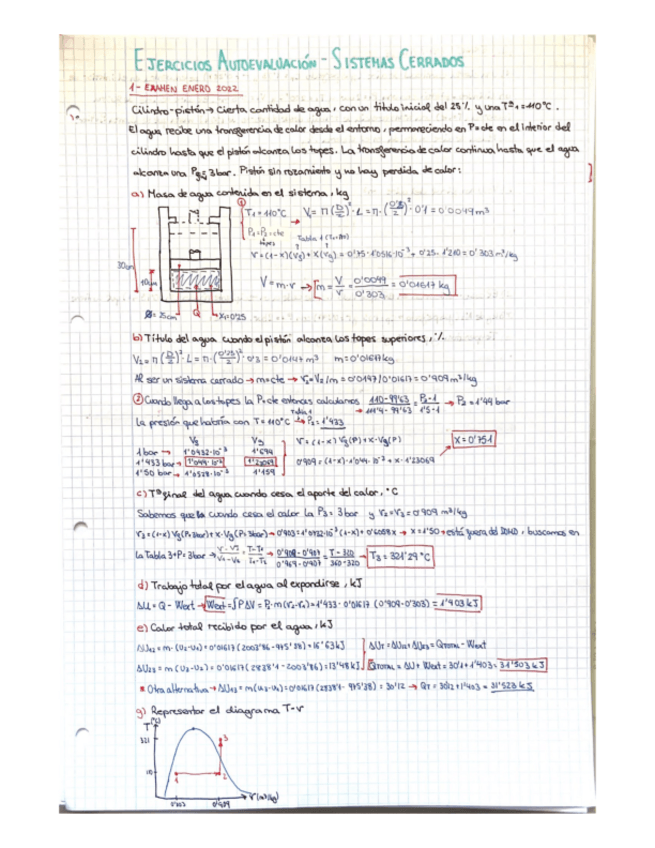 EJERCICIOS AUTOEVALUACIÓN - SISTEMAS CERRADOS
1- EXAMEN ENERO 2022
Cilindro-pistón → Cierta cantidad de agua, con un título inicial del 25% y una Tª1=110°C.
El agua recibe una transferencia de calor desde el entorno, permaneciendo en P=cte en el interior del
cilindro hasta que el pistón alcanza los topes. La transferencia de calor continua hasta que el agua
alcanza una Pg= 3bar. Pistón sin rozamiento y no hay perdida de calor:
a) Masa de agua contenida en el sistema, kg
T1=110°C
P1=P2=cte
topes
30cm
10cm
Ø= 25cm
Q
X1=0'25
Tabla 1
V = m·v → m = V/v = 0'0049/0'303 = 0'01617 kg
b) Título del agua cuando el pistón alcanza los topes superiores, %
V2 = π(D/2)²·L = π·(0'25/2)²·0'3 = 0'0147m³ m=0'01617kg
Al ser un sistema cerrado → m=cte → v2=V2/m = 0'0147/0'01617 = 0'909 m³/kg
② Cuando llega a los topes la P=cte entonces calculamos
La presión que habría con T=110°C → P2=1'433
Vg
1 bar →
1'433 bar →
1'50 bar →
1'694
1'23069
1'159
0'909 = (1-x)·1'049·10⁻³ + x·1'23069
X=0'751
c) Tª final del agua cuando cesa el aporte del calor, °C
Sabemos que cuando cesa el calor la P3=3bar y v2=v3=0'909 m³/kg
está fuera del DOMO, buscamos en
la Tabla 3 → P=3bar
T3=321'29°C
d) Trabajo total por el agua al expandirse, kJ
ΔU = Q - Wext → Wext=∫PΔV = P·m(v2-v1)=1'433·0'01617 (0'909-0'303) = 1'403 kJ
e) Calor total recibido por el agua, kJ
ΔU12 = m·(u2-u1)=0'01617(2003'86-975'38) = 16'63kJ
ΔU23 = m(u3-u2)=0'01617(2838'1-2003'86)=13'48kJ
QTOTAL = ΔU + Wext = 30'1+1'403= 31'503 kJ
* Otra alternativa → ΔU13=m(u3-u1)=0'01617(2838'1-975'38) = 30'12 → QT = 30'12+1'403 = 31'523 kJ
g) Representar el diagrama T-v
T(°C)
321
110
1
2
3
0'303
0'909
v(m³/kg)